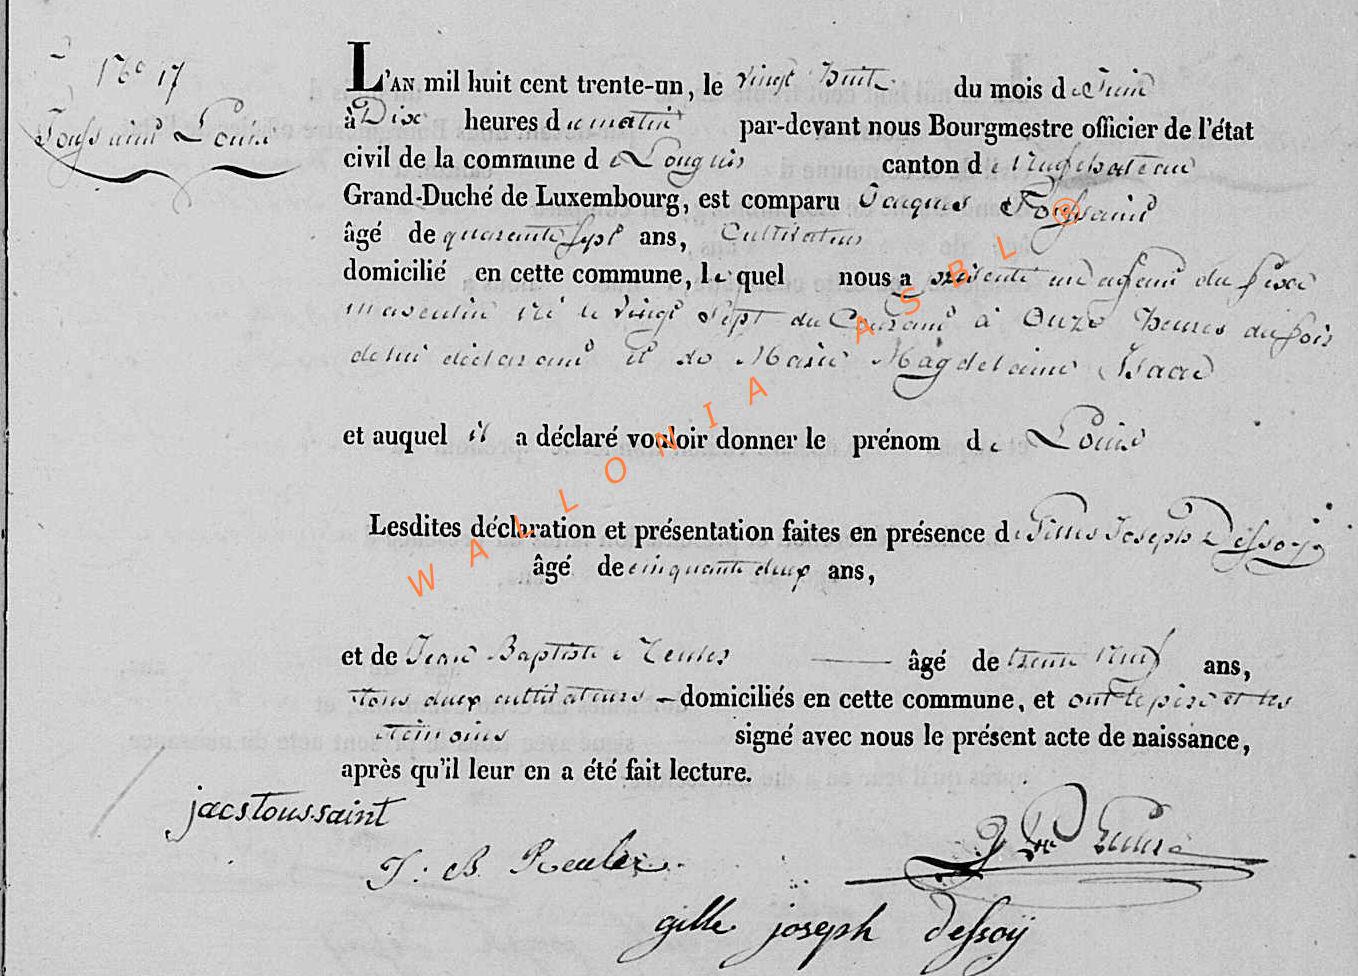 No 17
Toussaint Louis
L'AN mil huit cent trente-un, le vingt huit du mois de Juin
à Dix heures du matin par-devant nous Bourgmestre officier de l'état
civil de la commune de Louglier canton de Neufchateau
Grand-Duché de Luxembourg, est comparu Jacques Toussaint
âgé de quarante sept ans, Cultivateur
domicilié en cette commune, lequel nous a présenté un enfant du sexe
masculin né le vingt sept du Courant à Onze heures du soir
de lui déclarant et de Marie Magdelaine Isaac
et auquel il a déclaré vouloir donner le prénom de Louis
Lesdites déclaration et présentation faites en présence de Gilles Joseph Dessoy
âgé de cinquante deux ans,
et de Jean Baptiste Reuler âgé de trente neuf ans,
tous deux cultivateurs – domiciliés en cette commune, et ont le père et les
témoins signé avec nous le présent acte de naissance,
après qu'il leur en a été fait lecture.
jacstoussaint
J. B. Reuler
gille joseph dessoÿ
WALLONIA ASBL @